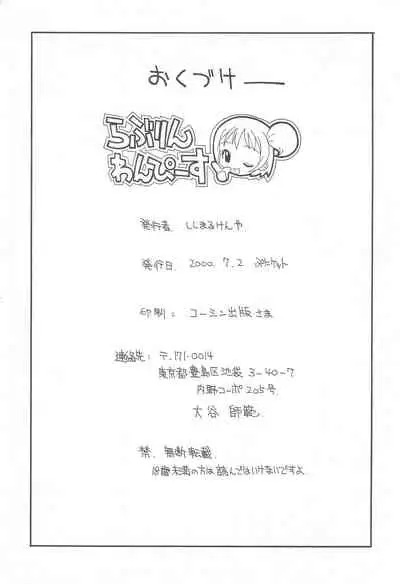 おくづけ
らぶりん
わんぴーす
発行者 ししまるけんや
発行日 2000. 7. 2 ぷにケット
印刷: コーミン出版さま
連絡先: 〒171-0014
東京都豊島区池袋 3-40-7
内野コーポ 205号
大谷 師範
禁、無断転載
18歳未満の方は読んではいけないですよ